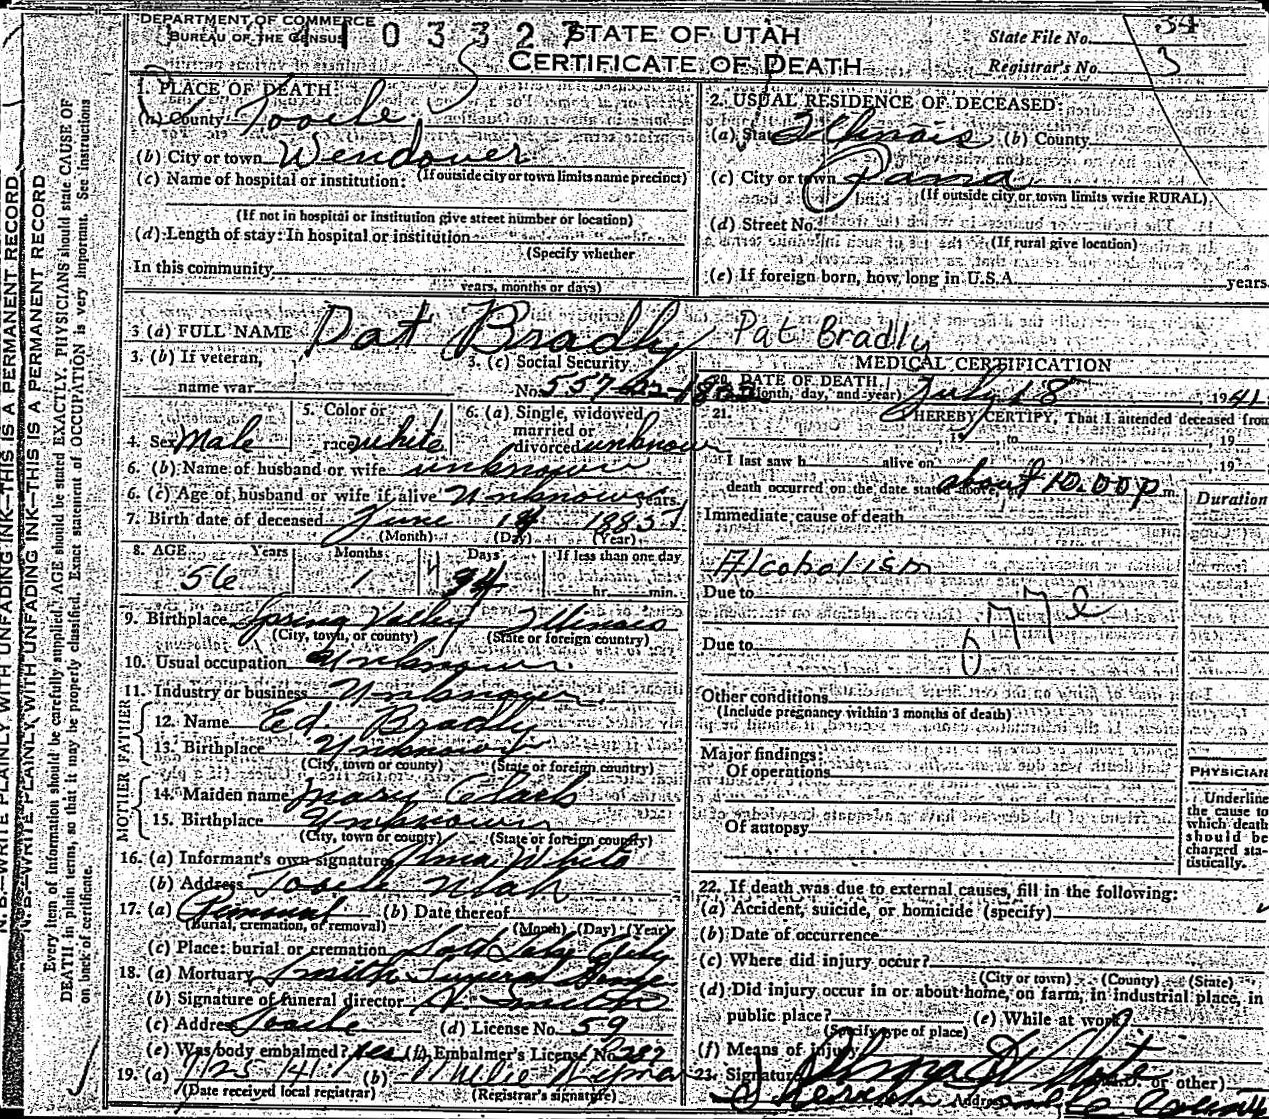 DEPARTMENT OF COMMERCE
BUREAU OF THE CENSUS
STATE OF UTAH
CERTIFICATE OF DEATH
State File No. 34
Registrar's No. 3
1. PLACE OF DEATH:
(a) County Tooele
(b) City or town Wendover
(If outside city or town limits name precinct)
(c) Name of hospital or institution:
(If not in hospital or institution give street number or location)
(d) Length of stay: In hospital or institution
(Specify whether
In this community
years, months or days)
2. USUAL RESIDENCE OF DECEASED:
(a) State Illinois (b) County
(c) City or town Pana
(If outside city or town limits write RURAL)
(d) Street No.
(If rural give location)
(e) If foreign born, how long in U.S.A. years
3 (a) FULL NAME Pat Bradly Pat Bradly
3. (b) If veteran,
name war
3. (c) Social Security
No. 557
4. Sex Male
5. Color or
race white
6. (a) Single, widowed
married or
divorced unknow
6. (b) Name of husband or wife unknown
6. (c) Age of husband or wife if alive Unknown years
7. Birth date of deceased June 1885
(Month) (Day) (Year)
8. AGE Years Months Days If less than one day
56 1 hr. min.
9. Birthplace Spring Valley Illinois
(City, town, or county) (State or foreign country)
10. Usual occupation Unknown
11. Industry or business Unknown
FATHER
12. Name Ed Bradly
13. Birthplace Unknown
(City, town or county) (State or foreign country)
MOTHER
14. Maiden name Mary Clark
15. Birthplace Unknown
(City, town or county) (State or foreign country)
16. (a) Informant's own signature Alma White
(b) Address Tooele Utah
17. (a) Removal (b) Date thereof
(Burial, cremation, or removal) (Month) (Day) (Year)
(c) Place: burial or cremation Salt Lake City
18. (a) Mortuary Smith Funeral Home
(b) Signature of funeral director Smith
(c) Address Tooele (d) License No. 59
(e) Was body embalmed? yes (f) Embalmer's License No. 282
19. (a) 7/25/41 (b)
(Date received local registrar) (Registrar's signature)
MEDICAL CERTIFICATION
20. DATE OF DEATH
(Month, day, and year) July 18 , 1941
21. I HEREBY CERTIFY, That I attended deceased from
, 19 , to , 19
I last saw h alive on , 19
death occurred on the date stated above, at about 10.00 p m.
Duration
Immediate cause of death
Alcoholism
Due to
77e
Due to
Other conditions
(Include pregnancy within 3 months of death)
Major findings:
Of operations
Of autopsy
PHYSICIAN
Underline
the cause to
which death
should be
charged sta-
tistically.
22. If death was due to external causes, fill in the following:
(a) Accident, suicide, or homicide (specify)
(b) Date of occurrence
(c) Where did injury occur?
(City or town) (County) (State)
(d) Did injury occur in or about home, on farm, in industrial place, in
public place? (e) While at work?
(Specify type of place)
(f) Means of injury
23. Signature (M.D. or other)
Address
N. B.—WRITE PLAINLY WITH UNFADING INK—THIS IS A PERMANENT RECORD
N. B.—WRITE PLAINLY, WITH UNFADING INK—THIS IS A PERMANENT RECORD
Every item of information should be carefully supplied. AGE should be stated EXACTLY. PHYSICIANS should state CAUSE OF
DEATH in plain terms, so that it may be properly classified. Exact statement of OCCUPATION is very important. See instructions
on back of certificate.